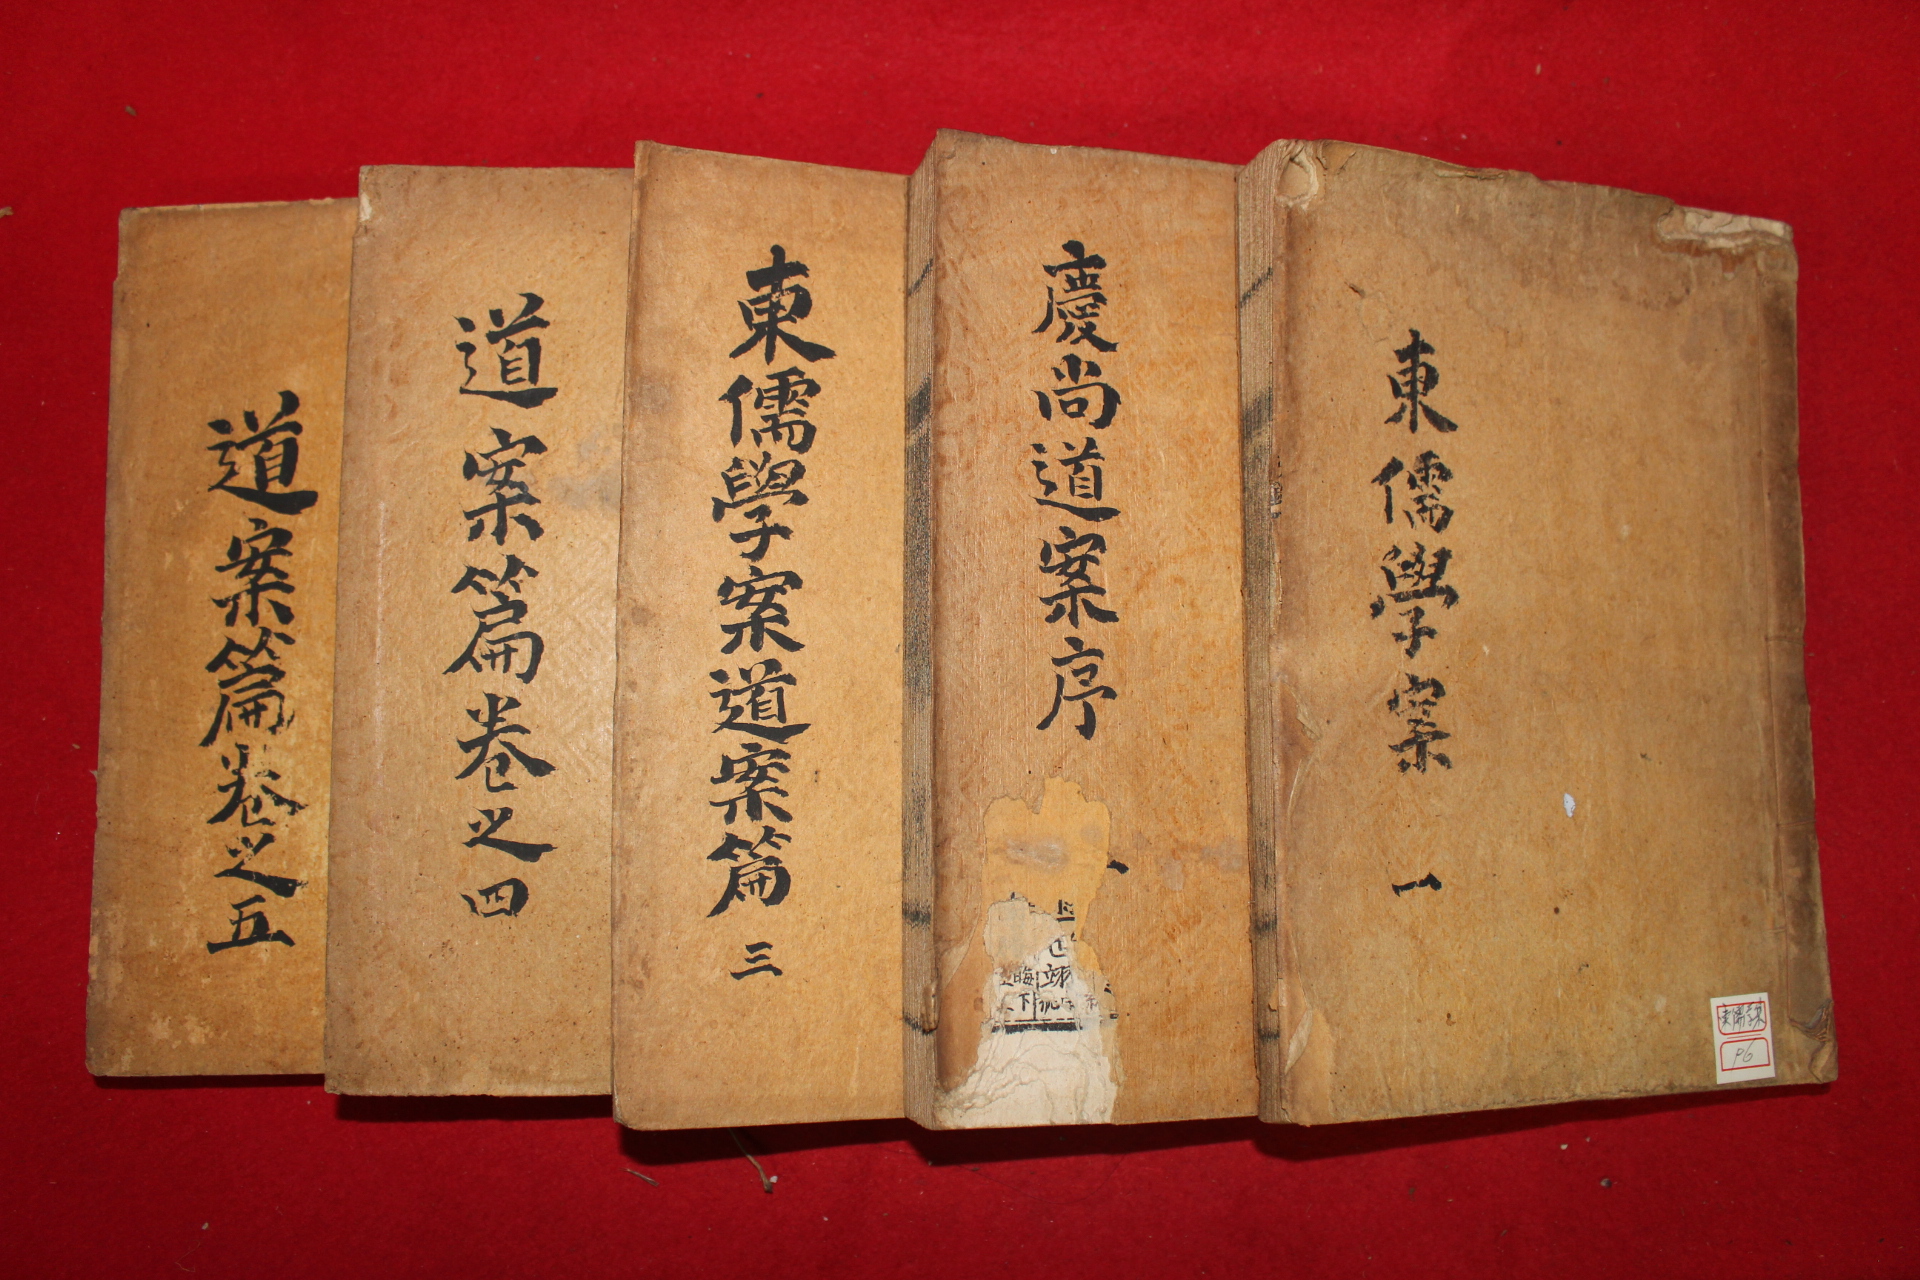 東儒學案 一
慶尚道案序
東儒學案道案篇 三
道案篇卷之四
道案篇卷之五
P6